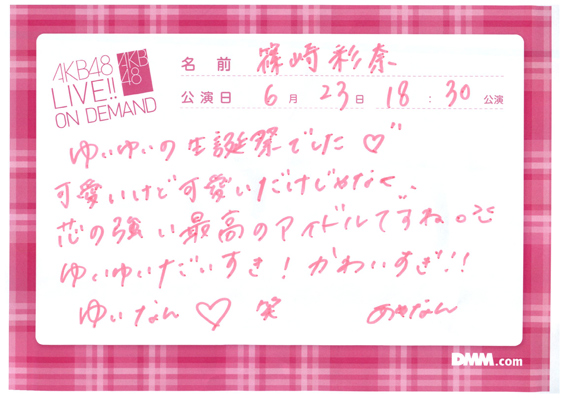 AKB48
LIVE!!
ON DEMAND
AKB
48
名前 篠崎彩奈
公演日 6月23日 18:30 公演
ゆいゆいの生誕祭でした♡”
可愛いけど可愛いだけじゃなく、
芯の強い最高のアイドルですね。
ゆいゆいだいすき!かわいすぎ!!
ゆいなん♡ 笑 あやなん
DMM.com